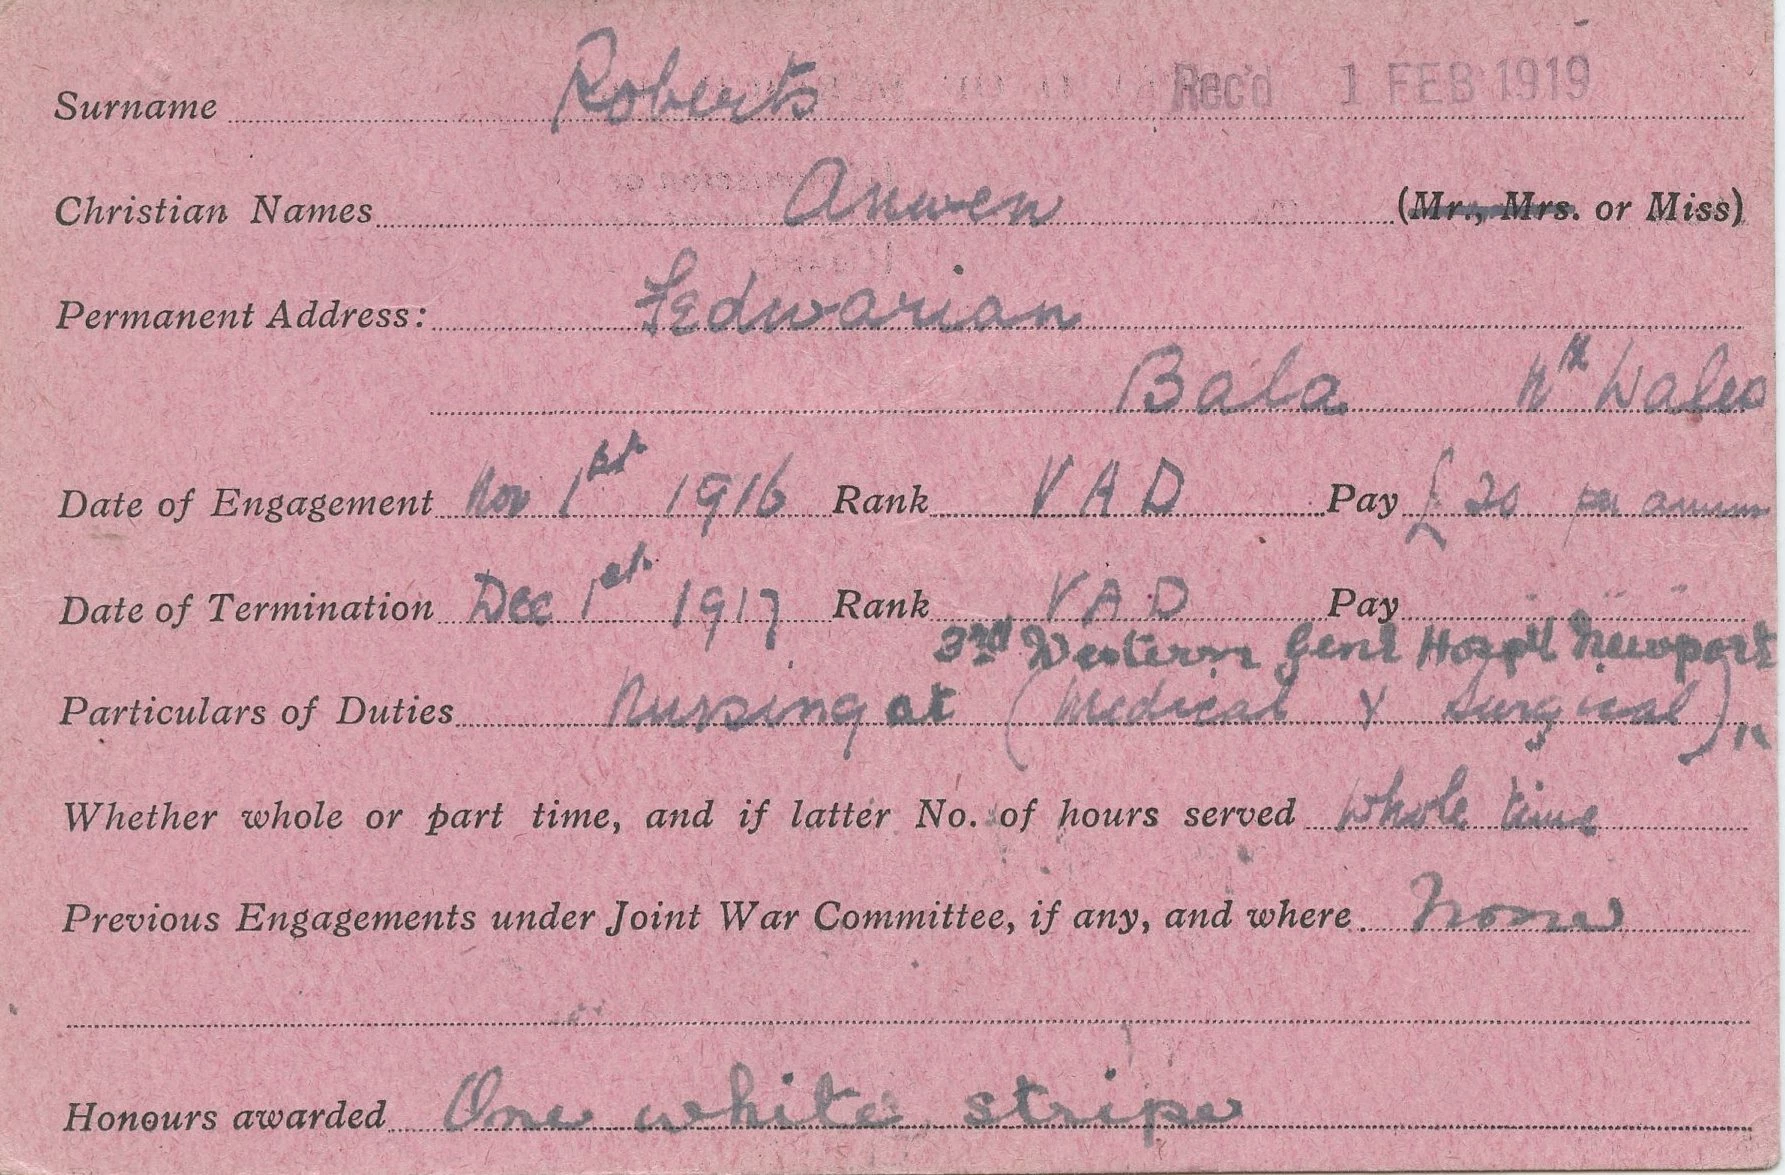 Surname Roberts Rec'd 1 FEB 1919
Christian Names Anwen (Mr., Mrs. or Miss)
Permanent Address: Fedwarian
Bala Nth Wales
Date of Engagement Nov 1st 1916 Rank V A D Pay £20 per annum
Date of Termination Dec 1st 1917 Rank V A D Pay
3rd Western Genl Hosptl Newport
Particulars of Duties Nursing at (Medical & Surgical)
Whether whole or part time, and if latter No. of hours served Whole time
Previous Engagements under Joint War Committee, if any, and where None
Honours awarded One white stripe